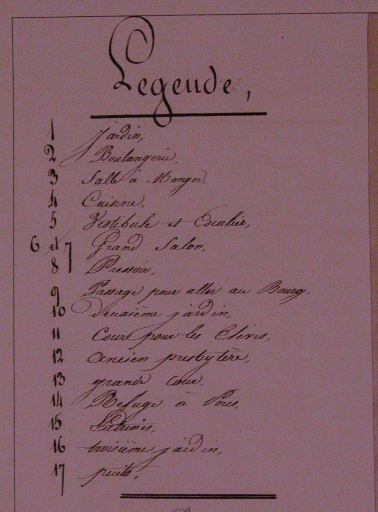 Legende,
1 Jardin,
2 Boulangerie,
3 Salle à Manger,
4 Cuisine,
5 Vestibule et Escalier,
6 et 7 Grand Salon,
8 Pressoir,
9 Passage pour aller au Bourg.
10 deuxième jardin,
11 Cour pour les Elèves,
12 ancien presbytère,
13 grande cour,
14 Refuge à Porcs,
15 Latrines,
16 troisième jardin,
17 puits,